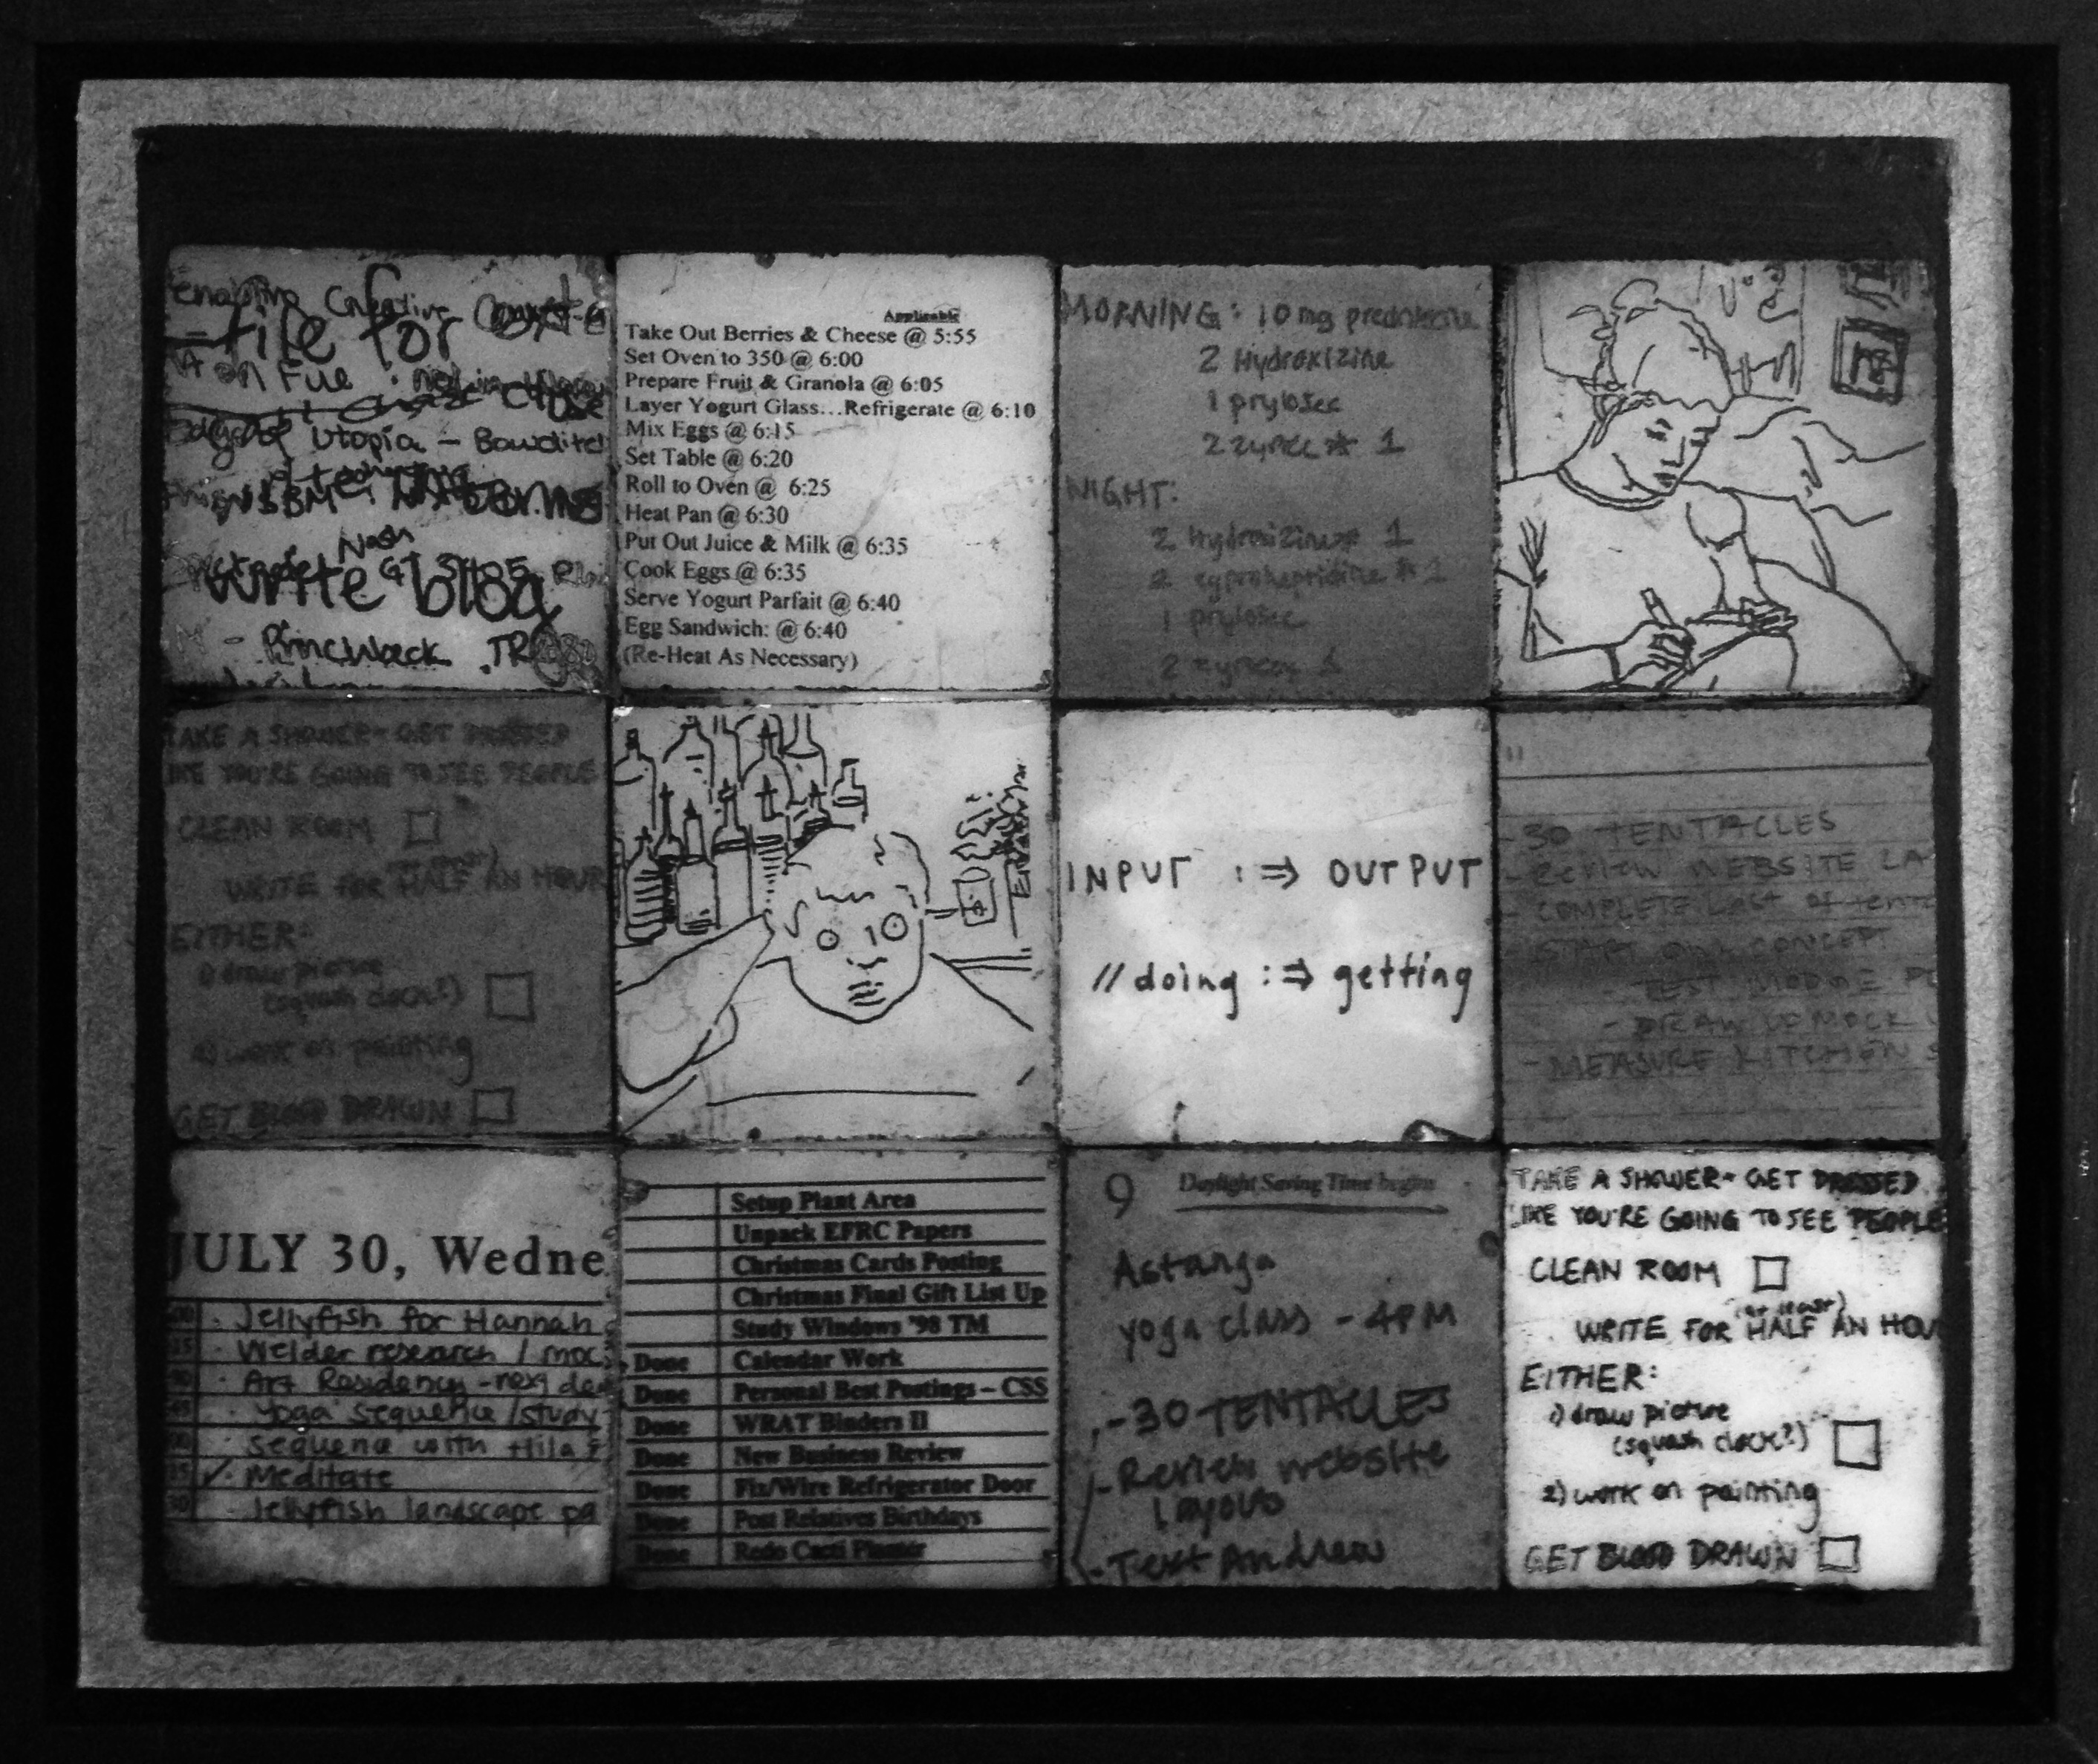 enabling Creative
- file for
on Fue
Utopia -
write blog
Nash
- Pinchbeck
Applicable
Take Out Berries & Cheese @ 5:55
Set Oven to 350 @ 6:00
Prepare Fruit & Granola @ 6:05
Layer Yogurt Glass…Refrigerate @ 6:10
Mix Eggs @ 6:15
Set Table @ 6:20
Roll to Oven @ 6:25
Heat Pan @ 6:30
Put Out Juice & Milk @ 6:35
Cook Eggs @ 6:35
Serve Yogurt Parfait @ 6:40
Egg Sandwich: @ 6:40
(Re-Heat As Necessary)
MORNING: 10 mg
2 Hydroxizine
1 prylosec
2 zyrtec * 1
NIGHT:
2 Hydroxizine * 1
2 cyproheptidine * 1
1 prylosec
2 zyrtec 1
TAKE A SHOWER - GET DRESSED
LIKE YOU'RE GOING TO SEE PEOPLE
CLEAN ROOM
(at least)
WRITE FOR HALF AN HOUR
EITHER:
1) draw picture
(squash clock?)
2) work on painting
GET BLOOD DRAWN
INPUT :⇒ OUTPUT
// doing :⇒ getting
- 30 TENTACLES
- REVIEW WEBSITE LA
- COMPLETE LAST OF tenta
START CONCEPT
- DRAW UP MOCK U
- MEASURE KITCHEN S
JULY 30, Wedne
· Jellyfish for Hannah
· Welder research / moc
· Art Residency - next de
· Yoga sequence / study
· sequence with Hila
✓ · Meditate
· Jellyfish landscape pa
Setup Plant Area
Unpack EFRC Papers
Christmas Cards Posting
Christmas Final Gift List Up
Study Windows '98 TM
Done Calendar Work
Done Personal Best Postings – CSS
Done WRAT Binders II
Done New Business Review
Done Fix/Wire Refrigerator Door
Done Post Relatives Birthdays
Done Redo Cacti Planter
9 Daylight Saving Time begins
Astanga
yoga class - 4PM
- 30 TENTACLES
- Review website
layouts
- Text Andrew
TAKE A SHOWER - GET DRESSED
LIKE YOU'RE GOING TO SEE PEOPLE
CLEAN ROOM
(at least)
WRITE FOR HALF AN HOU
EITHER:
1) draw picture
(squash clock?)
2) work on painting
GET BLOOD DRAWN